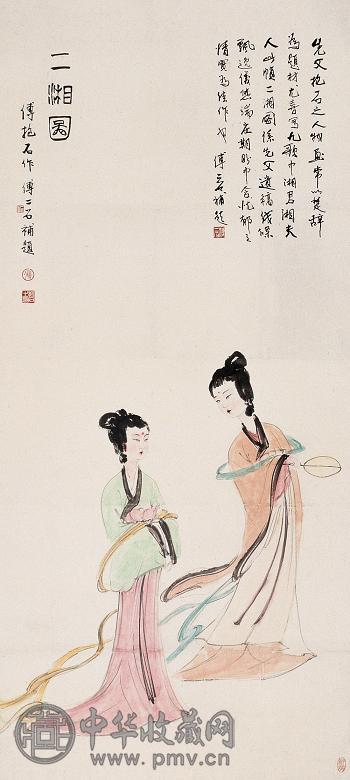 先父抱石之人物画常以楚辞
為题材尤喜写九歌中湘君湘夫
人此幀二湘图係先父遺稿线条
飘逸優然端庄期盼中含忧郁之
情實為佳作也 傅二石補题
二湘图
傅抱石作 傅二石補題
中华收藏网
www.pmv.cn